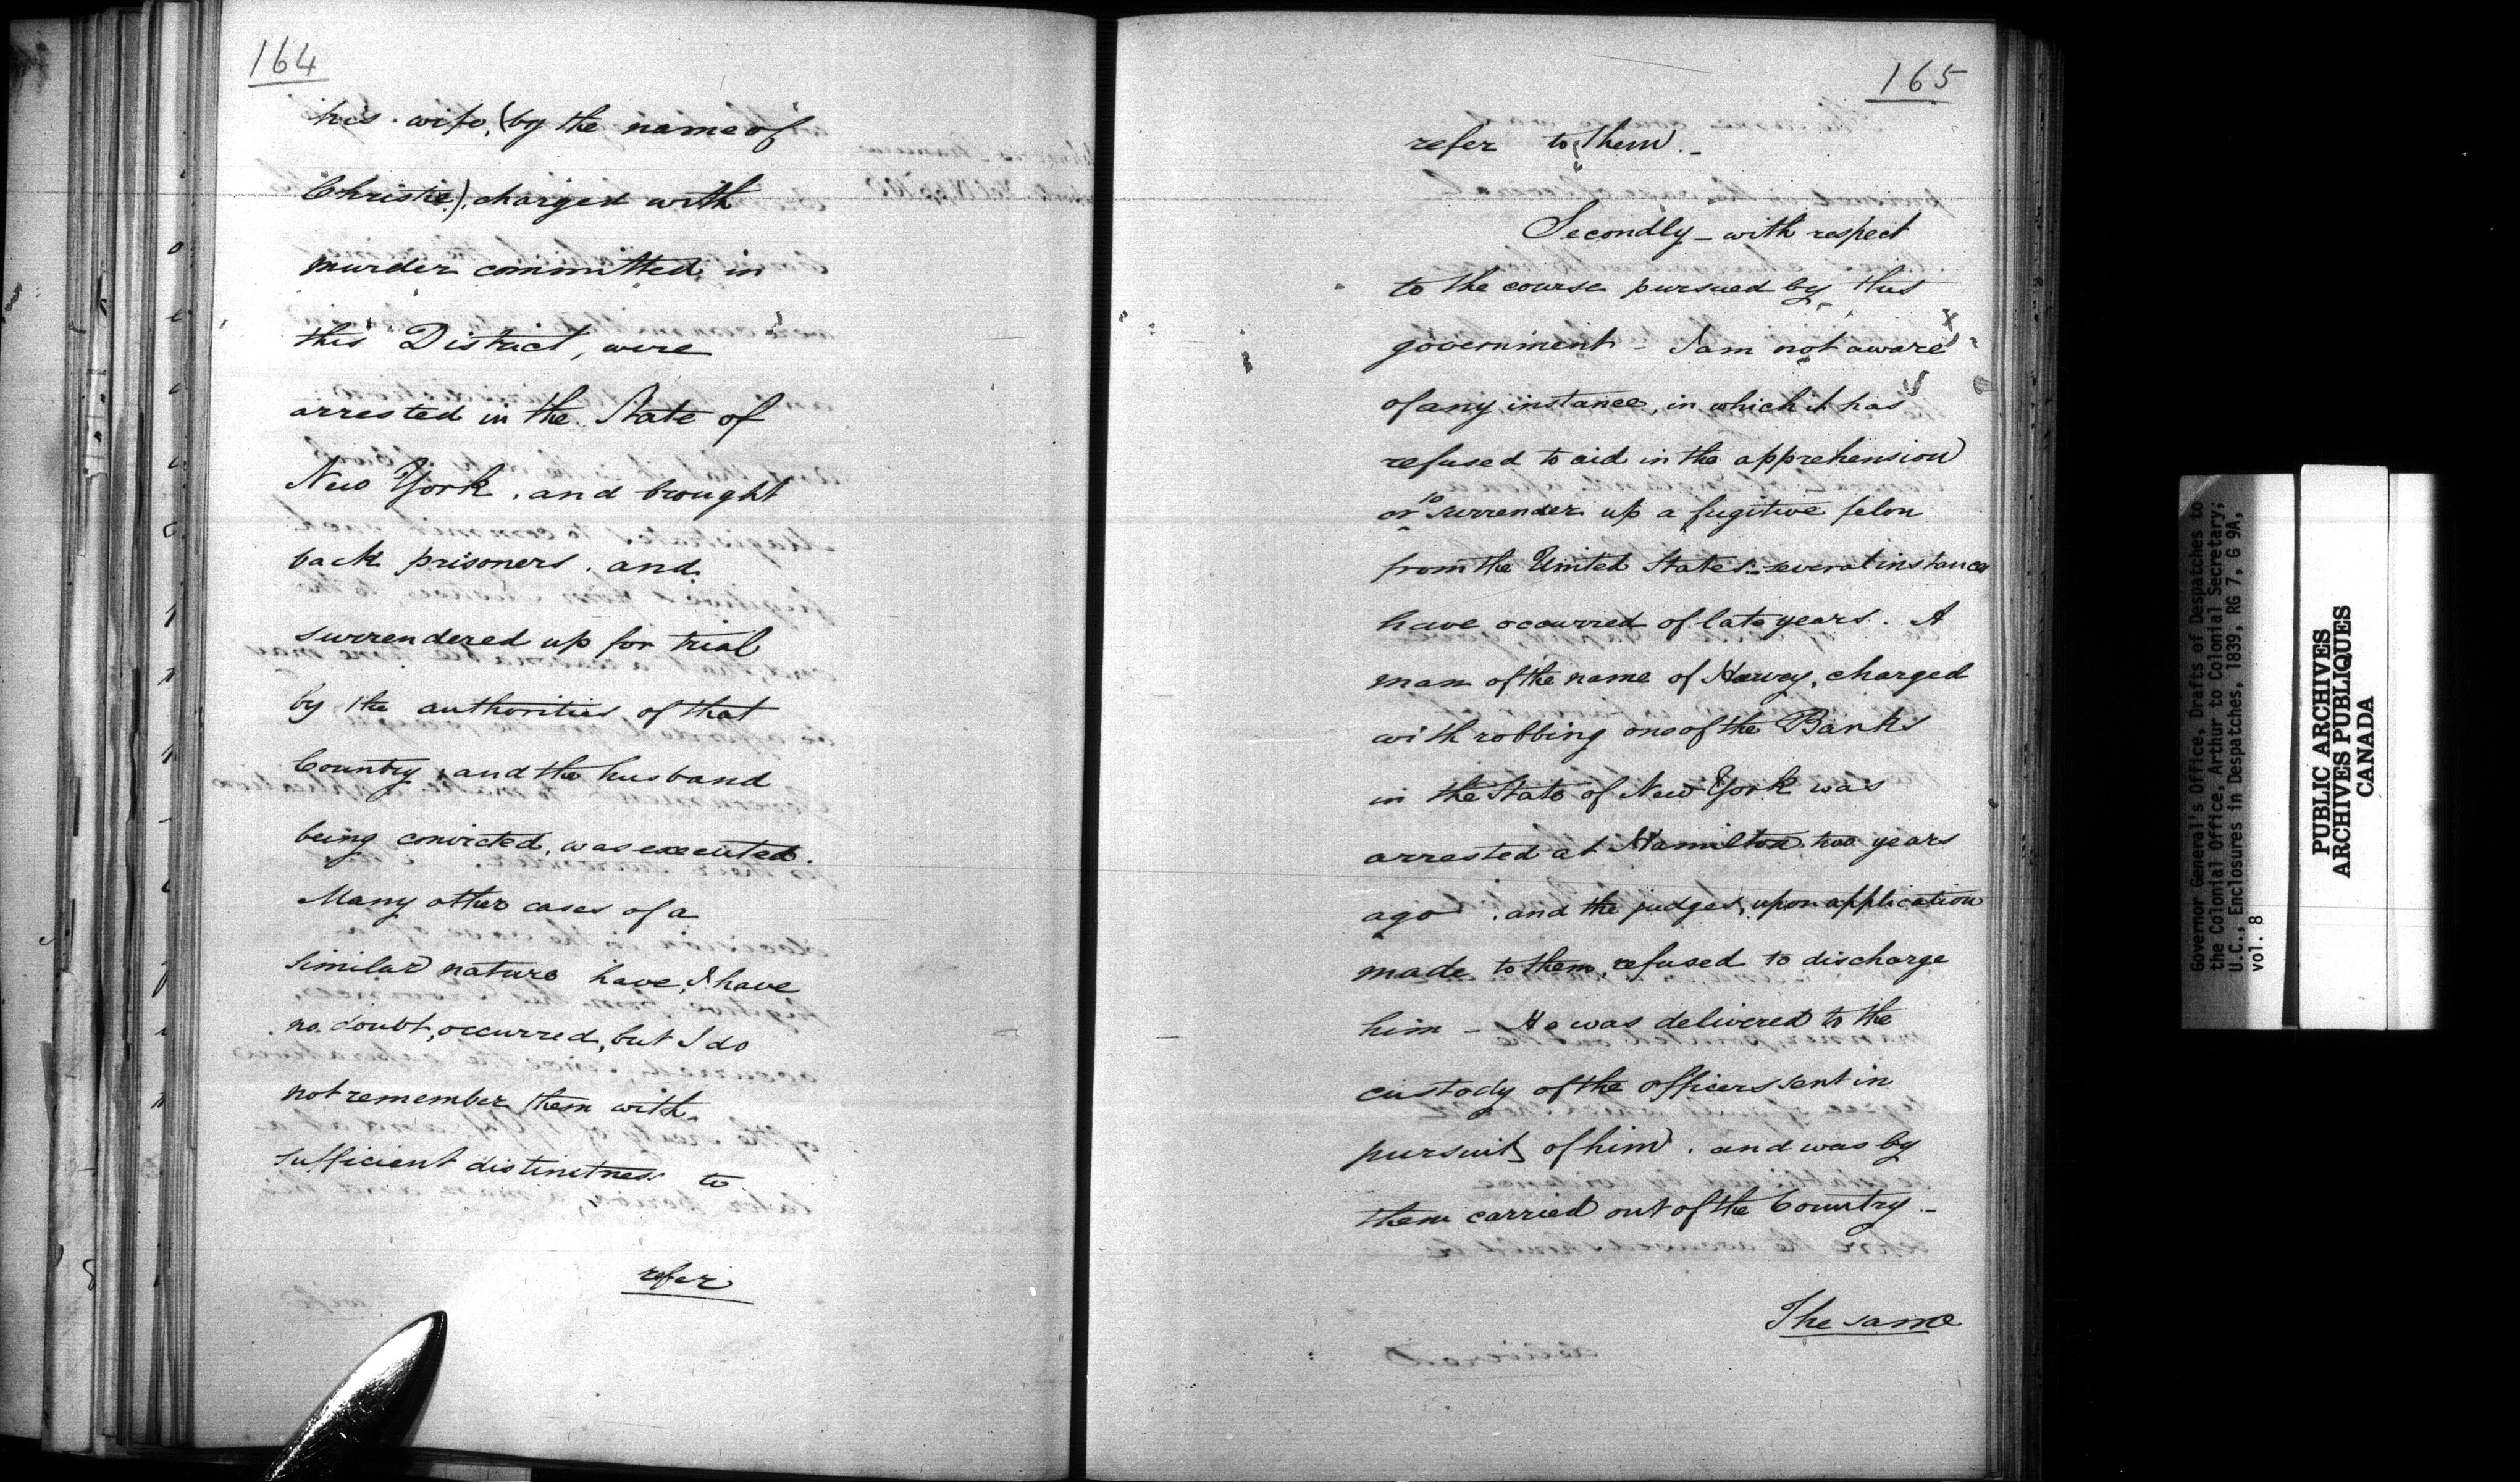 164
his wife, (by the name of
Christie), charged with
murder committed, in
this District, were
arrested in the State of
New York, and brought
back prisoners, and
surrendered up for trial
by the authorities of that
Country, and the husband
being convicted, was executed.
Many other cases of a
similar nature have, I have
no doubt, occurred, but I do
not remember them with
sufficient distinctness to
refer
165
refer to them. -
Secondly - with respect
to the course pursued by this
government - I am not aware
of any instance, in which it has
refused to aid in the apprehension
or to surrender up a fugitive felon
from the United States - several instances
have occurred of late years. A
man of the name of Harvey, charged
with robbing one of the Banks
in the State of New York was
arrested at Hamilton, two years
ago, and the judges, upon application
made to them, refused to discharge
him - He was delivered to the
custody of the officers sent in
pursuit of him, and was by
them carried out of the Country -
The same
Governor General's Office, Drafts of Despatches to
the Colonial Office, Arthur to Colonial Secretary;
U.C., Enclosures in Despatches, 1839, RG 7, G 9A,
vol. 8
PUBLIC ARCHIVES
ARCHIVES PUBLIQUES
CANADA